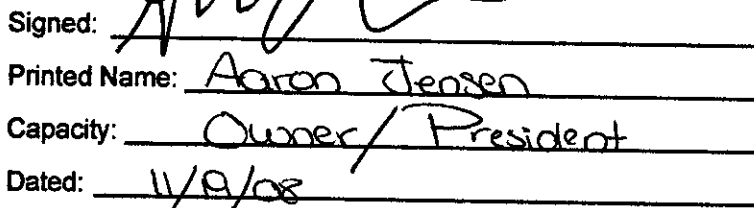 Signed:
Printed Name: Aaron Jensen
Capacity: Owner/President
Dated: 11/19/08